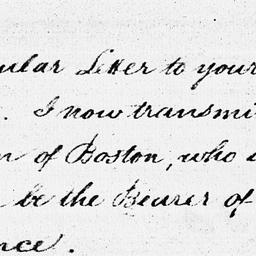 ular Letter to your
. I now transmi
n of Boston, who
be the Bearer of
nce.